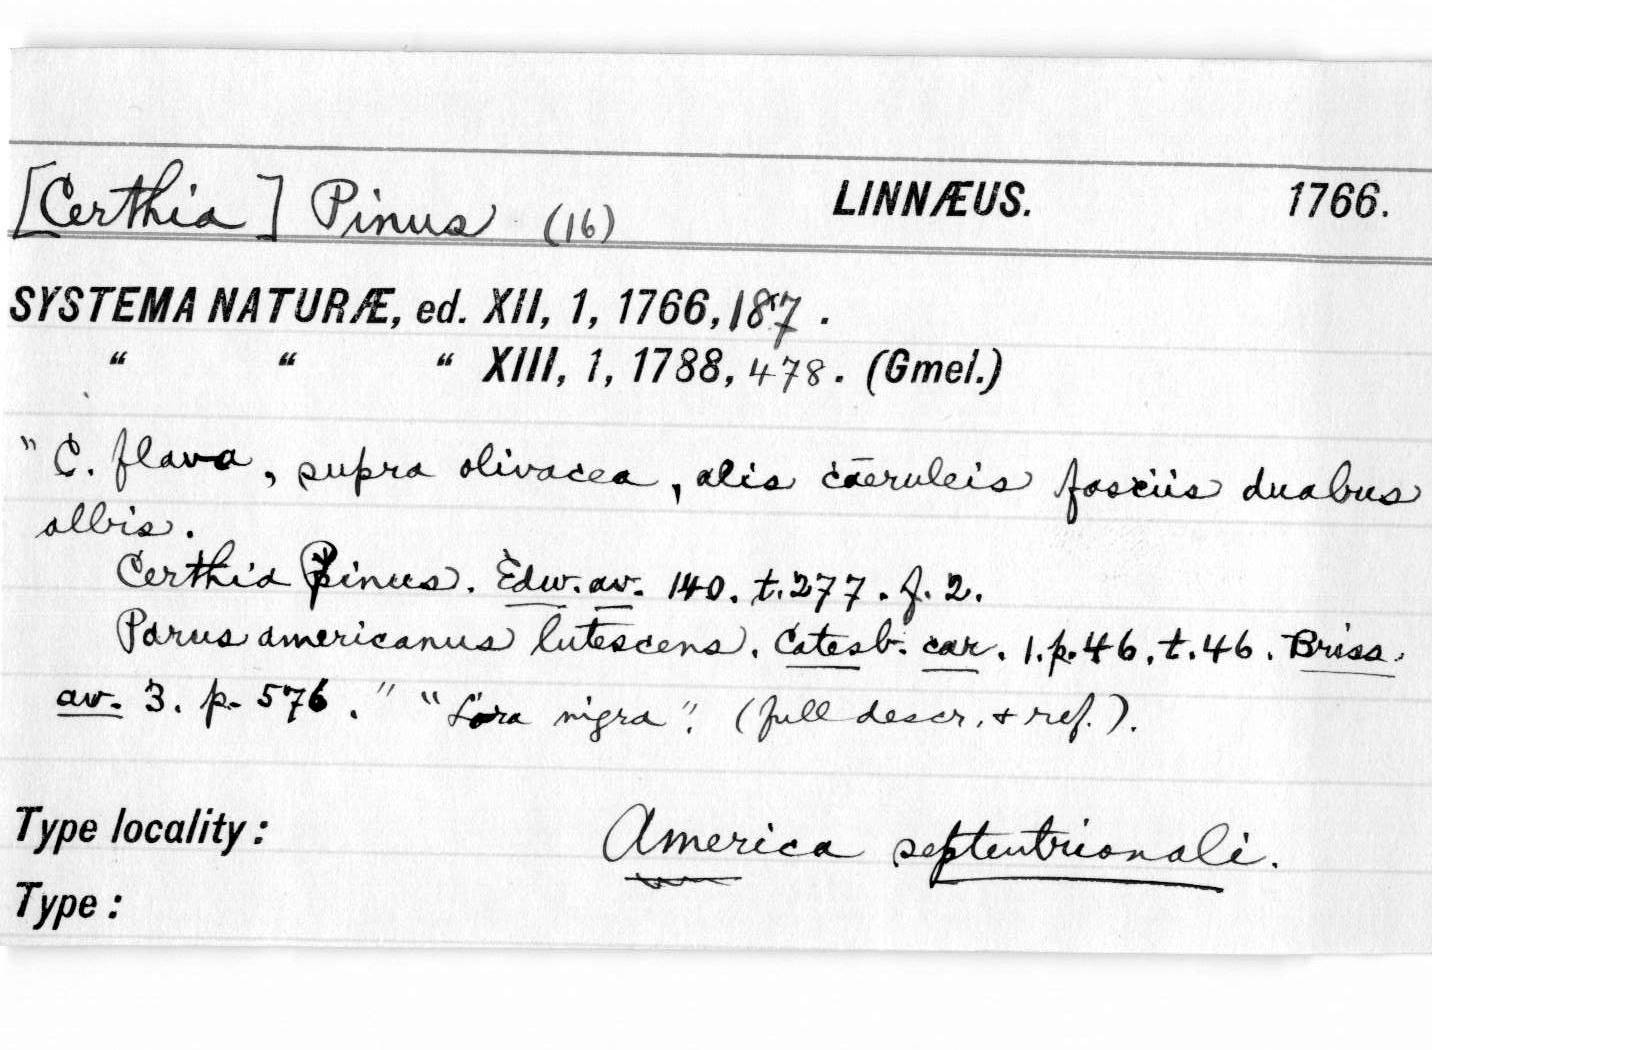 [Certhia] Pinus (16) LINNÆUS. 1766.
SYSTEMA NATURÆ, ed. XII, 1, 1766, 187.
“ “ “ XIII, 1, 1788, 478. (Gmel.)
"C. flava, supra olivacea, alis caeruleis fasciis duabus
albis.
Certhia Pinus. Edw. av. 140. t. 277. f. 2.
Parus americanus lutescens. Catesb. car. 1. p. 46. t. 46. Briss.
av. 3. p. 576." "Lora nigra". (full descr. + ref.).
Type locality: America septentrionali.
Type: